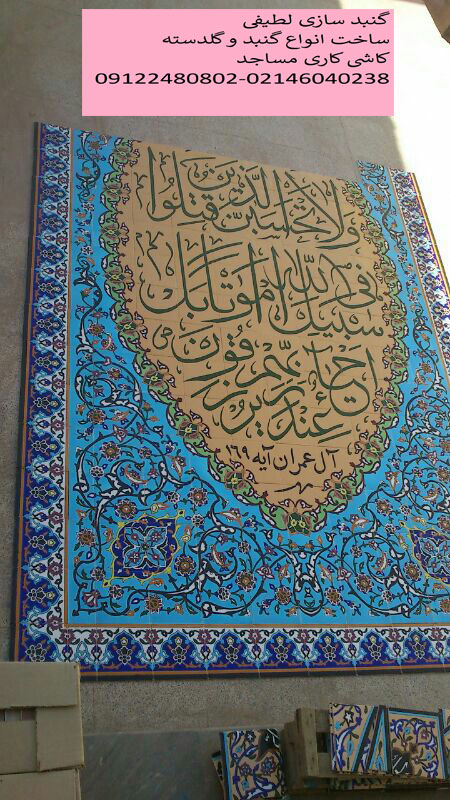 گنبد سازی لطیفی
ساخت انواع گنبد و گلدسته
کاشی کاری مساجد
09122480802-02146040238
ولا تحسبن الذین قتلوا
فی سبیل الله امواتا بل
احیاء عند ربهم یرزقون
آل عمران آیه ۱۶۹